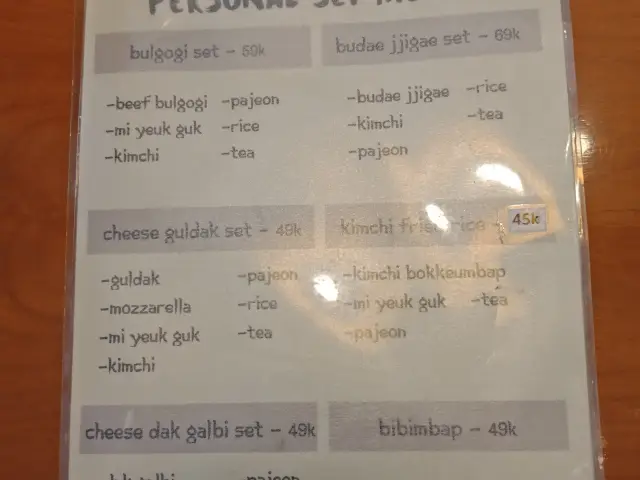 PERSONAL SET
bulgogi set - 59k
-beef bulgogi -pajeon
-mi yeuk guk -rice
-kimchi -tea
budae jjigae set - 69k
-budae jjigae -rice
-kimchi -tea
-pajeon
cheese guldak set - 49k
-guldak -pajeon
-mozzarella -rice
-mi yeuk guk -tea
-kimchi
kimchi fried rice - 45k
-kimchi bokkeumbap
-mi yeuk guk -tea
-pajeon
cheese dak galbi set - 49k
-pajeon
bibimbap - 49k